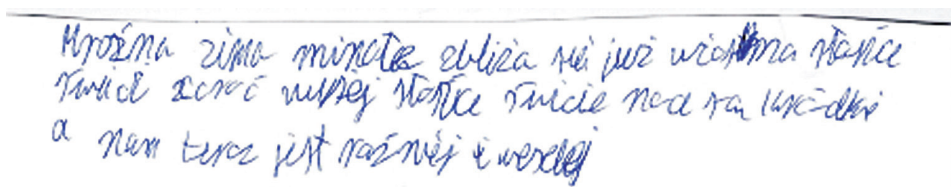 Mroźna zima minęła zbliża się już wiosna słońce
świeci coraz wyżej słońce świeci nad
a nam teraz jest raźniej i weselej